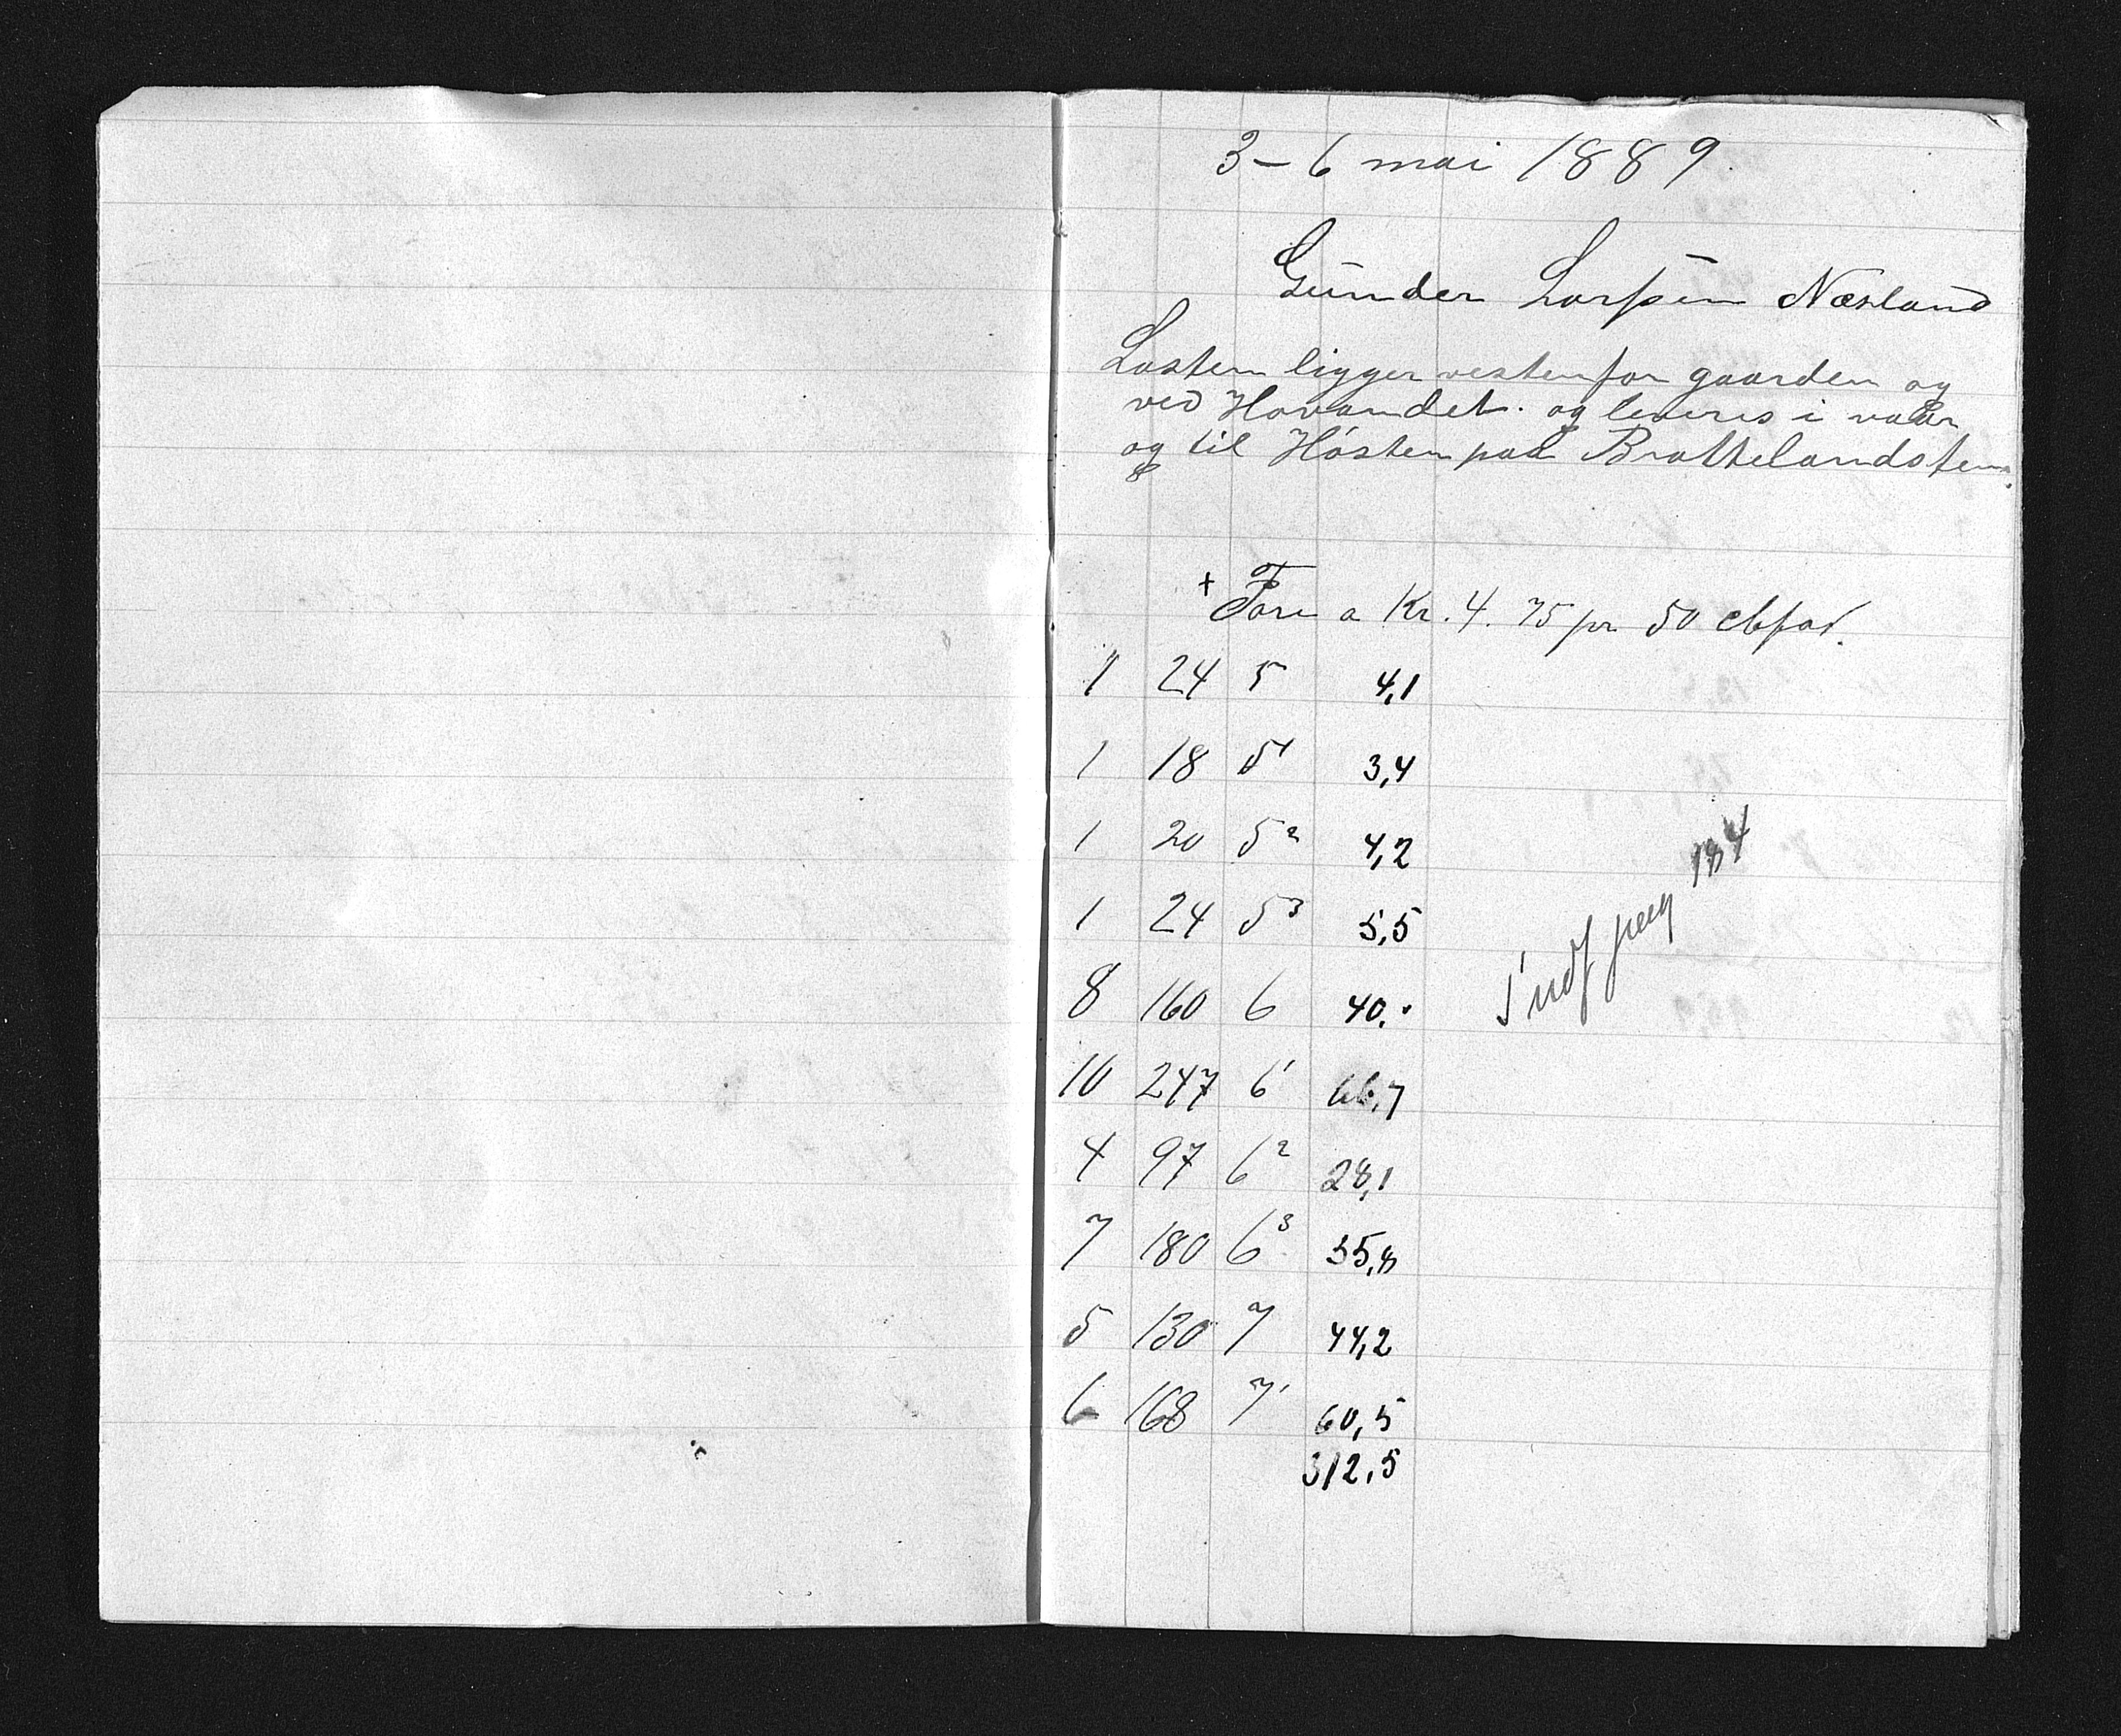 3–6 mai 1889.
Gunder Larsen Næsland
Lasten ligger vestenfor gaarden og
ved Hovandet. og leveres i vaar
og til Hösten paa Brattelandsten.
+ Furu a Kr. 4. 75 pr 50 cbfod.
1 24 5 4,1
1 18 5¹ 3,4
1 20 5² 4,2
1 24 5³ 5,5
8 160 6 40.
10 247 6¹ 66,7
4 97 6² 28,1
7 180 6³ 55,8
5 130 7 44,2
6 168 7¹ 60,5
312,5
Indf pag 184